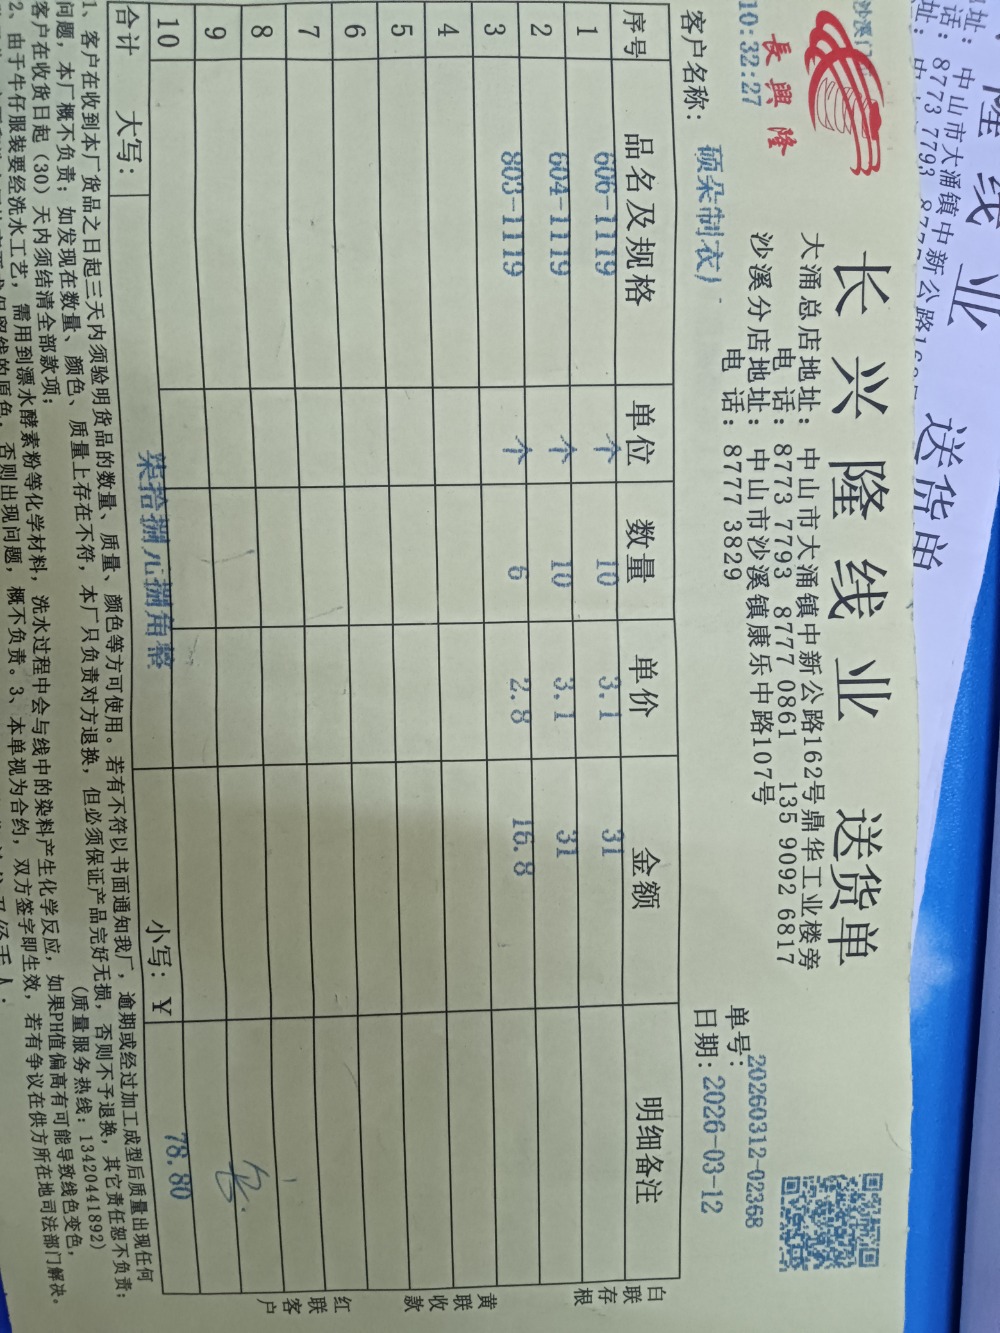 长兴隆线业 送货单
長興隆
10:32:27
大涌总店地址: 中山市大涌镇中新公路162号鼎华工业楼旁
电 话: 8773 7793 8777 0861 135 9092 6817
沙溪分店地址: 中山市沙溪镇康乐中路107号
电 话: 8777 3829
单号: 20260312-02368
客户名称: 颀朵制衣厂
日期: 2026-03-12
序号 品名及规格 单位 数量 单价 金额 明细备注
1 606-1119 个 10 3.1 31
2 604-1119 个 10 3.1 31
3 803-1119 个 6 2.8 16.8
4
5
6
7
8
9
10
合计 大写: 柒拾捌元捌角整 小写: ¥ 78.80
白联存根
黄联收款
红联客户
1、客户在收到本厂货品之日起三天内须验明货品的数量、质量、颜色等方可使用。若有不符以书面通知我厂, 逾期或经过加工成型后质量出现任何
问题, 本厂概不负责; 如发现在数量、颜色、质量上存在不符, 本厂只负责对方退换, 但必须保证产品完好无损, 否则不予退换, 其它责任恕不负责;
客户在收货日起 (30) 天内须结清全部款项; (质量服务热线: 13420441892)
2、由于牛仔服装要经洗水工艺, 需用到漂水酵素粉等化学材料, 洗水过程中会与线中的染料产生化学反应, 如果PH值偏高有可能导致线色变色,
保留线的原色, 否则出现问题, 概不负责。3、本单视为合约, 双方签字即生效, 若有争议在供方所在地司法部门解决。
隆线业 送货单
地址: 中山市大涌镇中新公路
话: 8773 7793